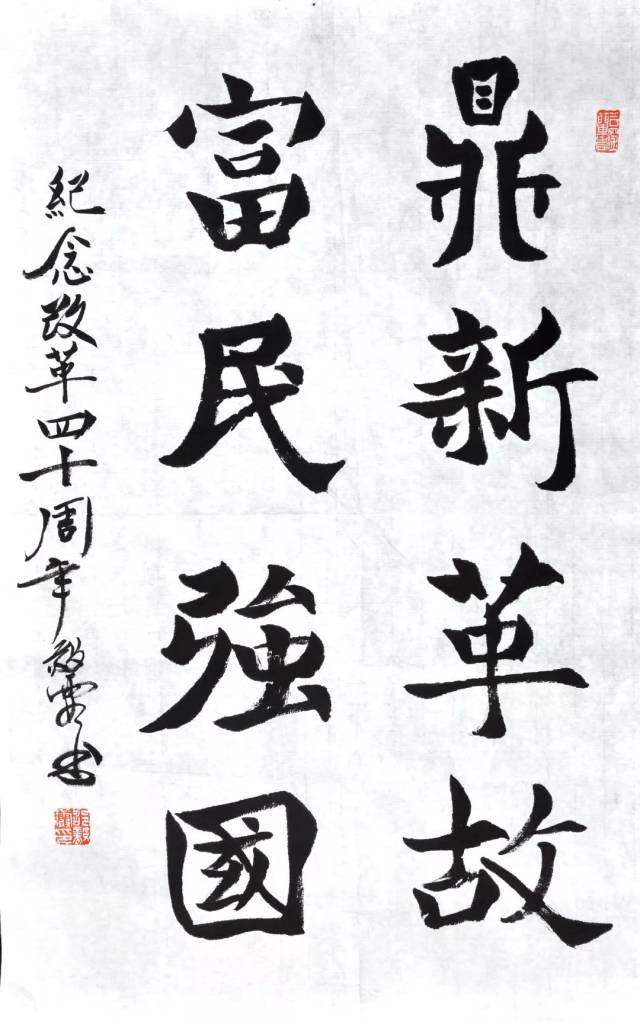 鼎新革故
富民強國
紀念改革四十周年 毅書